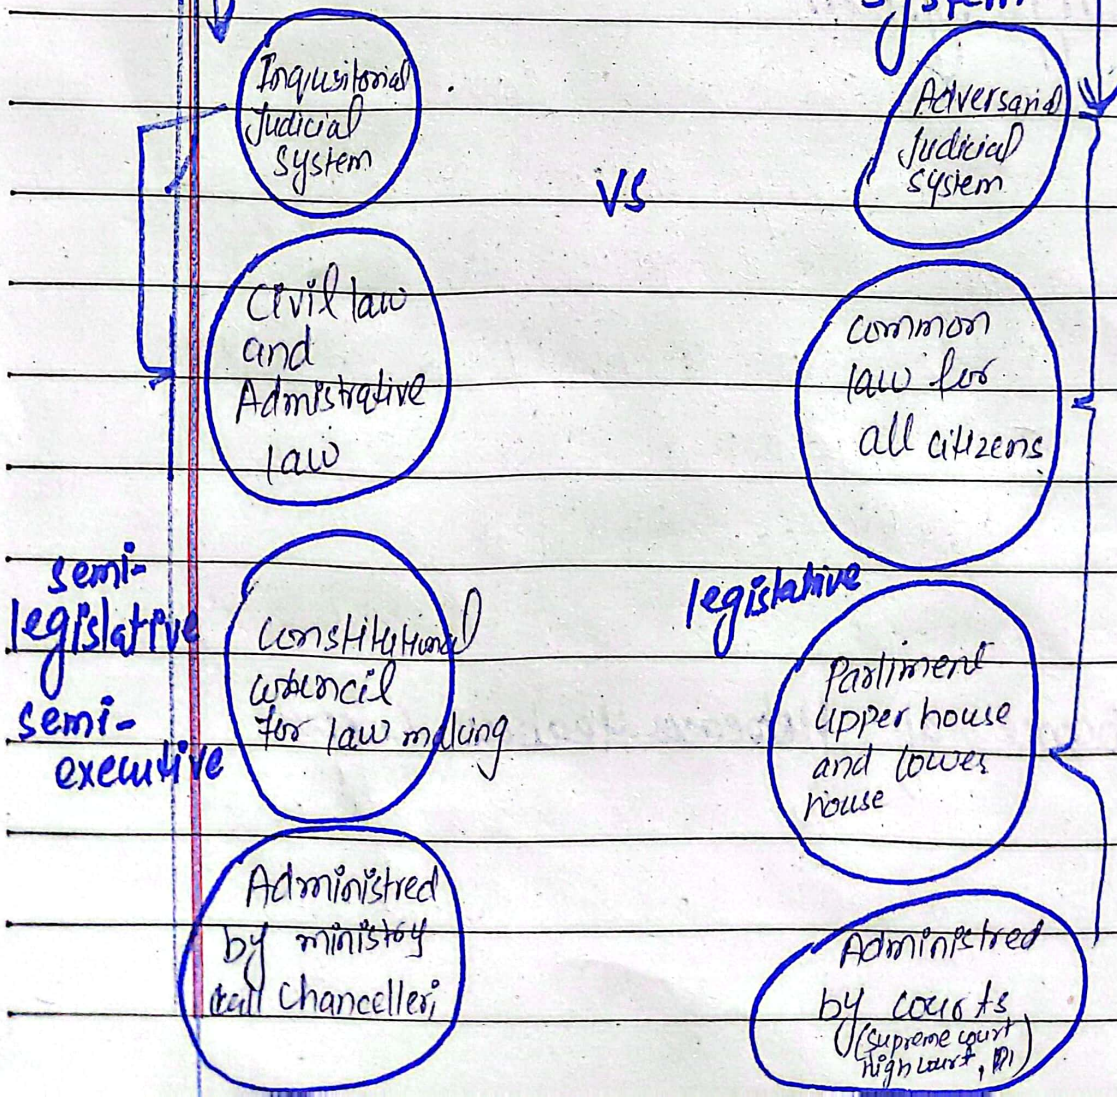 System
Inqusitorial
Judicial
System
Adversarial
Judicial
System
VS
Civil law
and
Admistrative
law
common
law for
all citizens
semi-
legislative
semi-
executive
constitutional
council
for law making
legislative
Parliment
upper house
and lower
house
Administred
by ministry
call Chancelleri
Administred
by courts
(supreme court
high court,